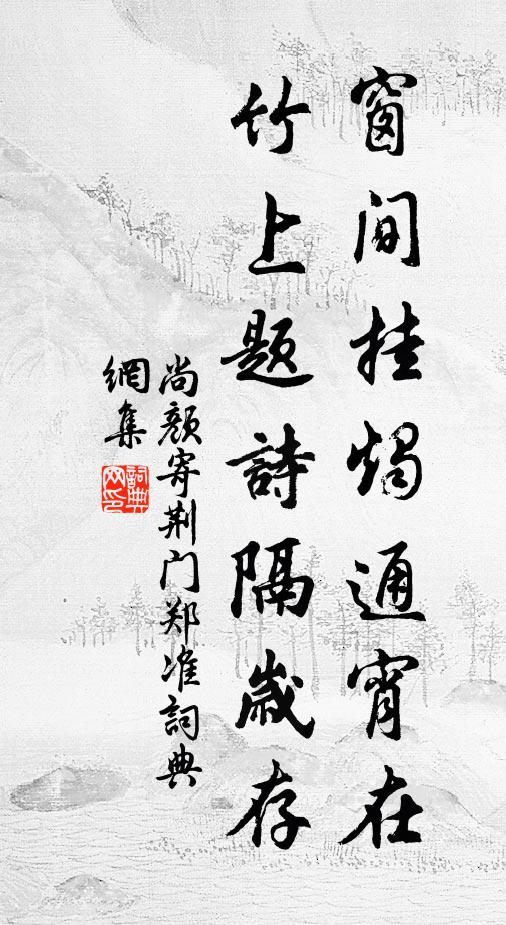 窗间挂燭通宵在
竹上题詩隔歲存
尚颜寄荆门郑准詞典
網集
詞典
网印